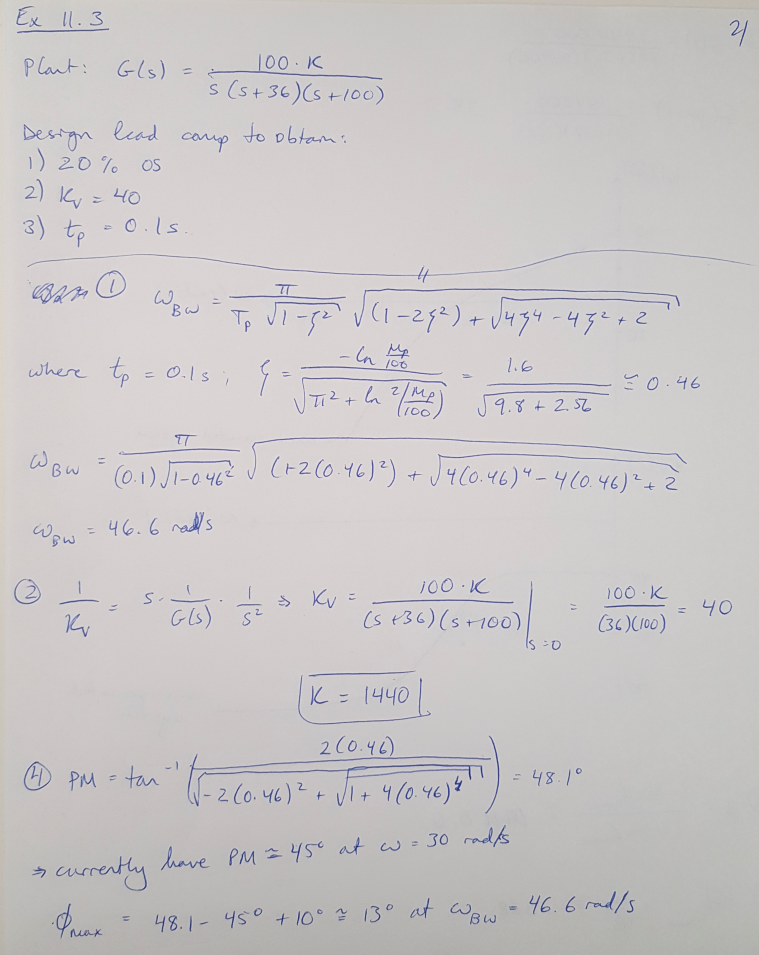 Ex 11.3
2/
Plant: G(s) = 100·K / s(s+36)(s+100)
Design lead comp to obtain:
1) 20% OS
2) Kv = 40
3) tp = 0.1s.
① ω_BW = π / (Tp √(1-ζ²)) √((1-2ζ²) + √(4ζ⁴-4ζ²+2))
where tp = 0.1s ; ζ = -ln (Mp/100) / √(π² + ln²(Mp/100)) = 1.6 / √(9.8 + 2.56) ≅ 0.46
ω_BW = π / ((0.1) √(1-0.46²)) √((1-2(0.46)²) + √(4(0.46)⁴ - 4(0.46)² + 2))
ω_BW = 46.6 rad/s
② 1/Kv = s · 1/G(s) · 1/s² ⇒ Kv = 100·K / (s+36)(s+100) |s=0 = 100·K / (36)(100) = 40
K = 1440
④ PM = tan⁻¹ (2(0.46) / √(-2(0.46)² + √(1 + 4(0.46)⁴))) = 48.1°
⇒ currently have PM ≅ 45° at ω = 30 rad/s
ϕmax = 48.1 - 45° + 10° ≅ 13° at ω_BW = 46.6 rad/s